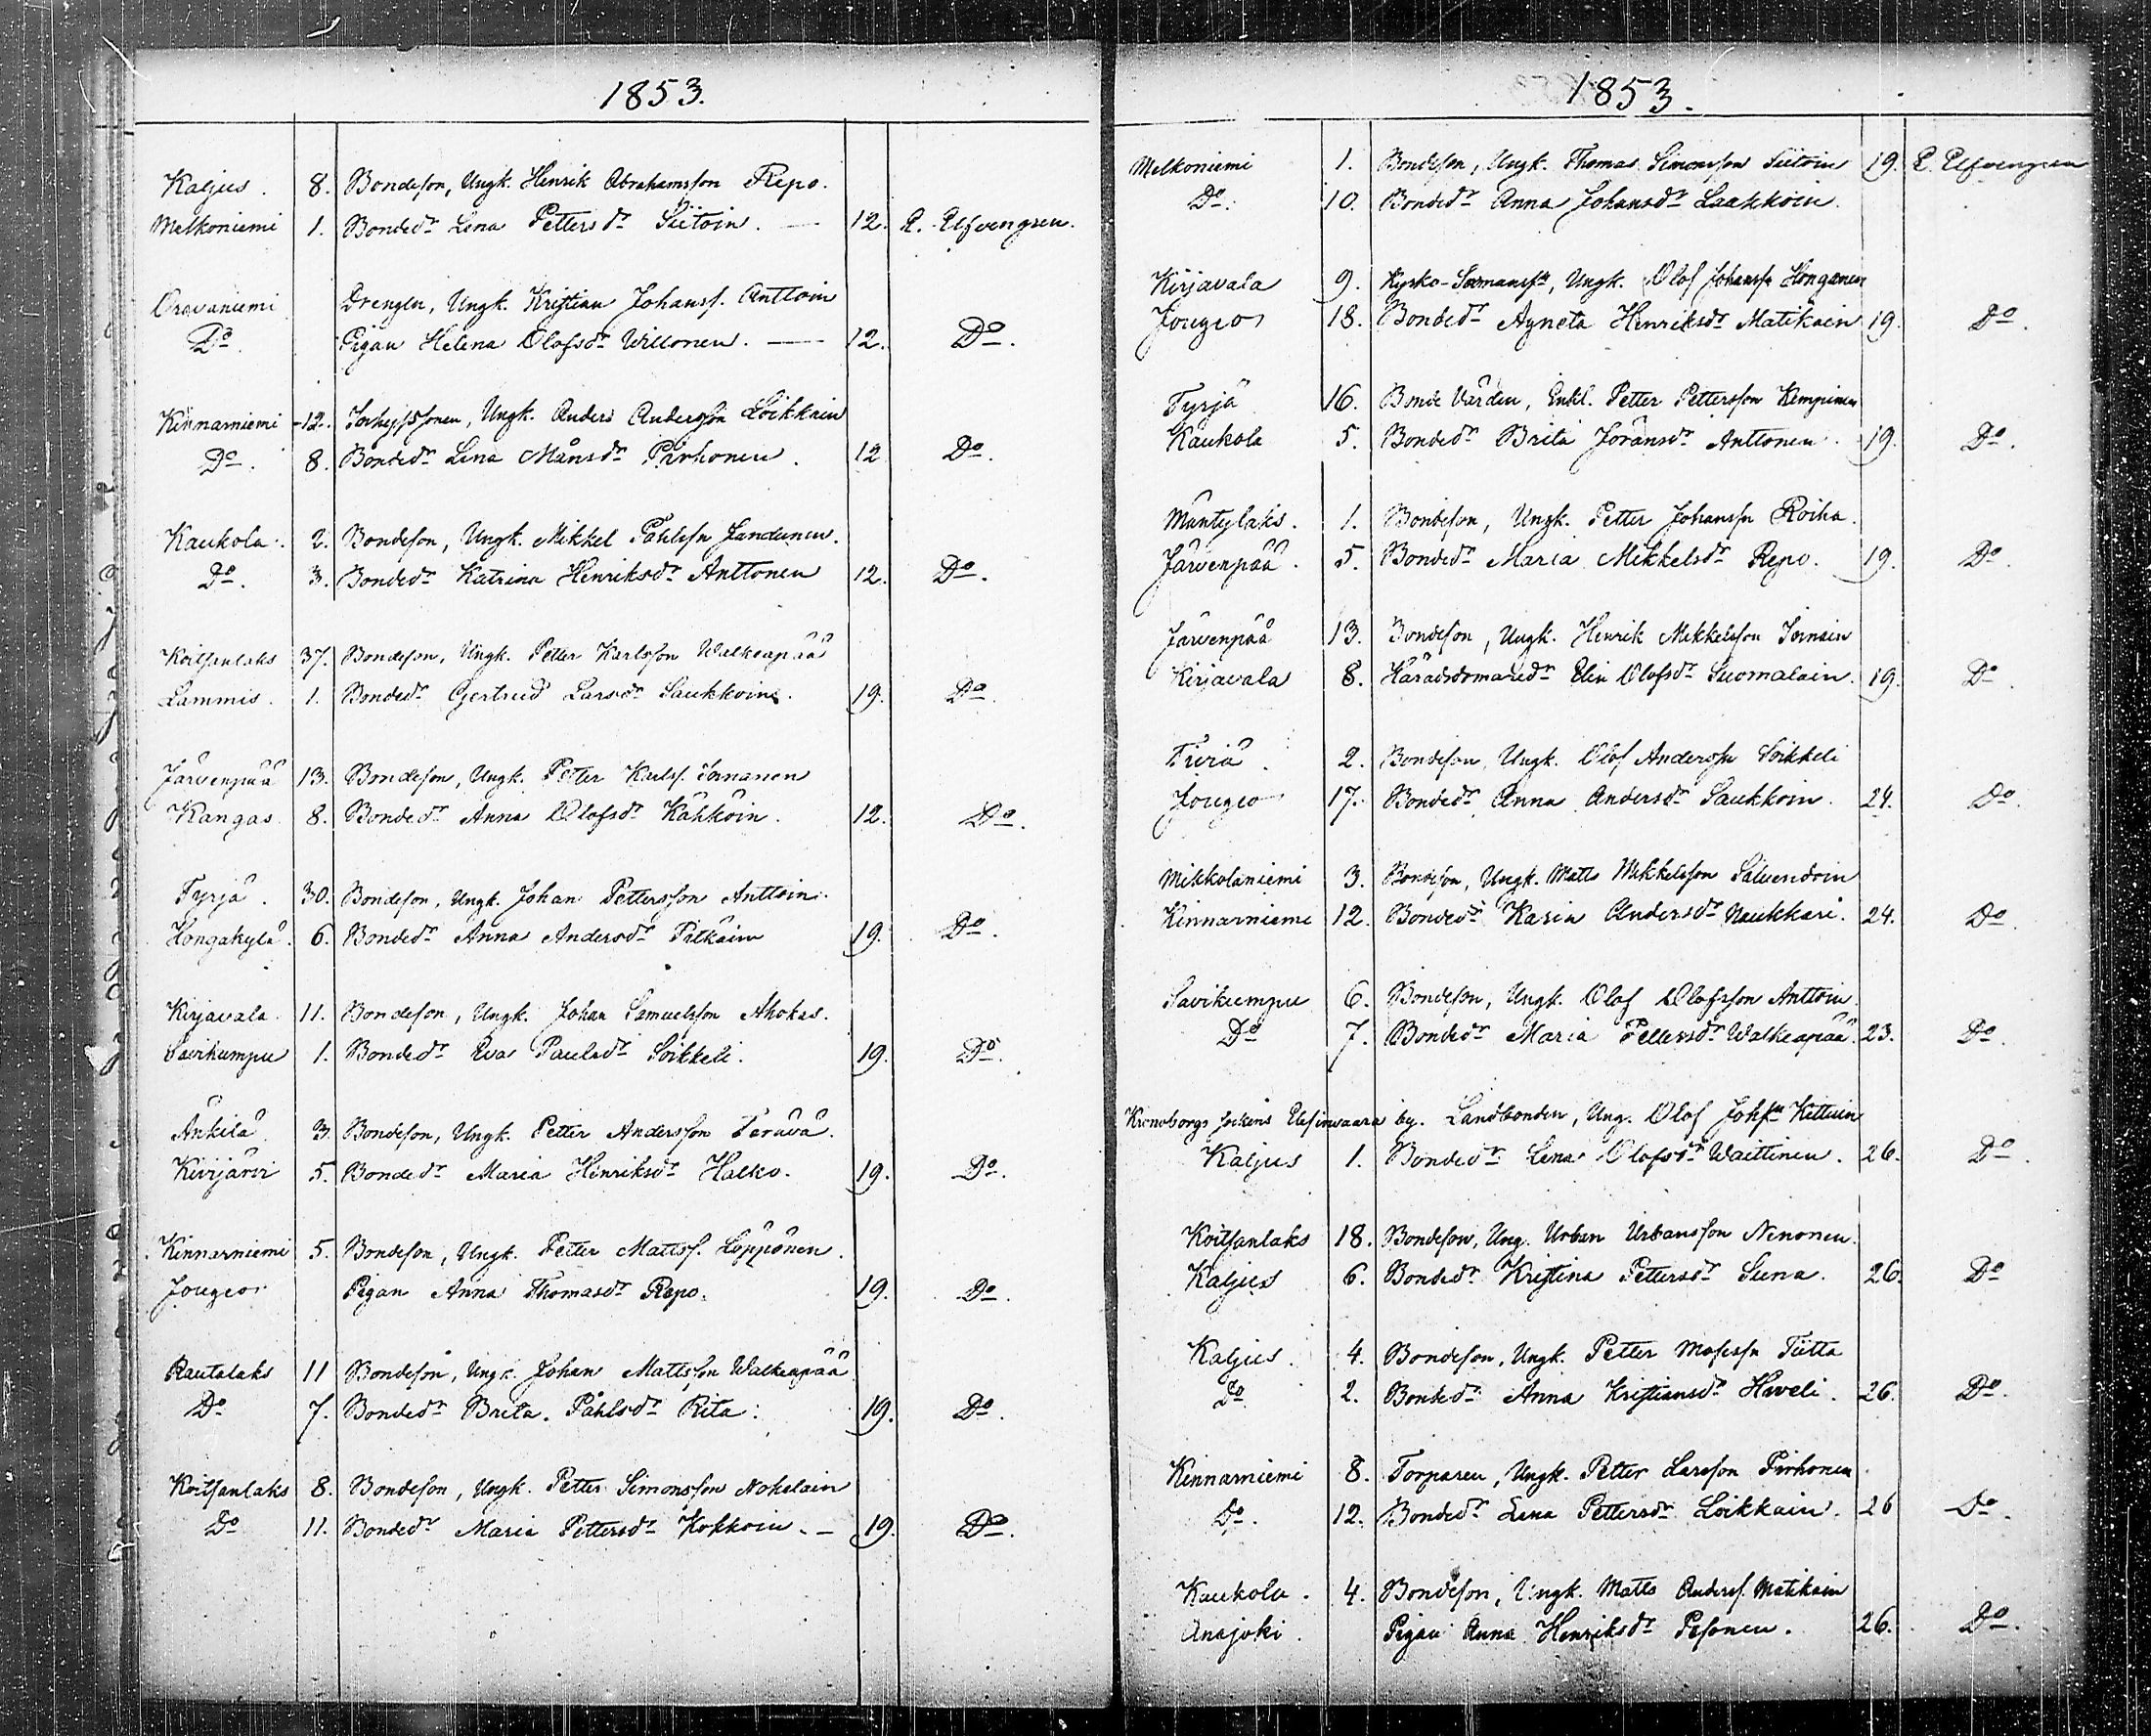 1853.
Kaljus. 8. Bondeson, Ungk. Henrik Abrahamsson Repo.
Melkoniemi 1. Bondedr Lena Pettersdr Siitoin. — 12. E. Elfvengren.
Oravaniemi Drengen, Ungk. Kristian Johanss. Anttoin
Do Pigan Helena Olofsdr Willonen. — 12. Do.
Kinnarniemi 12. Inhyssonen, Ungk. Anders Andersson Loikkain
Do. 8. Bondedr Lena Månsdr Pirhonen. 12 Do.
Kaukola. 2. Bondeson, Ungk. Mikkel Påhlssn Jandunen.
Do. 3. Bondedr Katrina Henriksdr Anttonen 12. Do.
Koitsanlaks 37. Bondeson, Ungk. Petter Karlsson Walkeapää
Lammis. 1. Bondedr Gertrud Larsdr Saukkoin. 19. Do
Järvenpää 13. Bondeson, Ungk. Petter Karlss. Innanen
Kangas 8. Bondedr Anna Olofsdr Kähköin. 12. Do.
Tyrjä. 30. Bondeson, Ungk. Johan Pettersson Anttoin.
Hongakylä. 6. Bondedr Anna Andersdr Pitkäin 19. Do.
Kirjavala. 11. Bondeson, Ungk. Johan Samuelsson Ahokas.
Savikumpu 1. Bondedr Eva Paulsdr Soikkeli. 19. Do.
Änkilä 3. Bondeson, Ungk. Petter Andersson Terävä.
Kivijärvi 5. Bondedr Maria Henriksdr Halko. 19. Do.
Kinnarniemi 5. Bondeson, Ungk. Petter Mattss. Löppönen.
Jougio Pigan Anna Thomasdr Repo. 19. Do.
Rautalaks 11 Bondeson, Ungk. Johan Mattsson Walkeapää
Do 7. Bondedr Brita Påhlsdr Rita. 19. Do.
Koitsanlaks 8. Bondeson, Ungk. Petter Simonsson Nokelain
Do 11. Bondedr Maria Pettersdr Kokkoin. — 19. Do.
1853.
Melkoniemi 1. Bondeson, Ungk. Thomas Simonsson Siitoin 19. E. Elfvengren
Do. 10. Bondedr Anna Johansdr Laakkoin.
Kirjavala 9. Kyrko-Sexmanss, Ungk. Olof Johanssn Honganen
Jougio 18. Bondedr Agneta Henriksdr Matikain 19. Do.
Tyrjä 16. Bonde Värden, Enkl. Petter Pettersson Kempinen
Kaukola 5. Bondedr Brita Jöransdr Anttonen. 19. Do.
Mäntylaks. 1. Bondeson, Ungk. Petter Johanssn Roiha.
Järvenpää. 5. Bondedr Maria Mikkelsdr Repo. 19. Do.
Järvenpää 13. Bondeson, Ungk. Henrik Mikkelsson Innain
Kirjavala 8. Häradsdomaredr Elin Olofsdr Suomalain. 19. Do.
Tiviä. 2. Bondeson, Ungk. Olof Anderssn Soikkeli
Jougio 17. Bondedr Anna Andersdr Saukkoin. 24. Do.
Mikkolaniemi 3. Bondeson, Ungk. Matts Mikkelsson Silvendoin
Kinnarniemi 12. Bondedr Karin Andersdr Naukkari. 24. Do.
Savikumpu 6. Bondeson, Ungk. Olof Olofsson Anttoin.
Do 7. Bondedr Maria Pettersdr Walkeapää. 23. Do.
Kronoborgs sockens Elisinwaara by. Landbonden, Ung. Olof Johssn Kettuin
Kaljus 1. Bondedr Lena Olofsdr Waittinen. 26. Do.
Koitsanlaks 18. Bondeson, Ung. Urban Urbansson Nenonen.
Kaljus 6. Bondedr Kristina Pettersdr Suna. 26. Do
Kaljus. 4. Bondeson, Ungk. Petter Mosessn Tiitta
Do 2. Bondedr Anna Kristiansdr Hweli. 26. Do.
Kinnarniemi 8. Torparen, Ungk. Petter Larsson Pirhonen
Do. 12. Bondedr Lena Pettersdr Loikkain. 26 Do.
Kaukola. 4. Bondeson, Ungk. Matts Anderss. Matikain
Anajoki. Pigan Anna Henriksdr Pesonen. 26. Do.